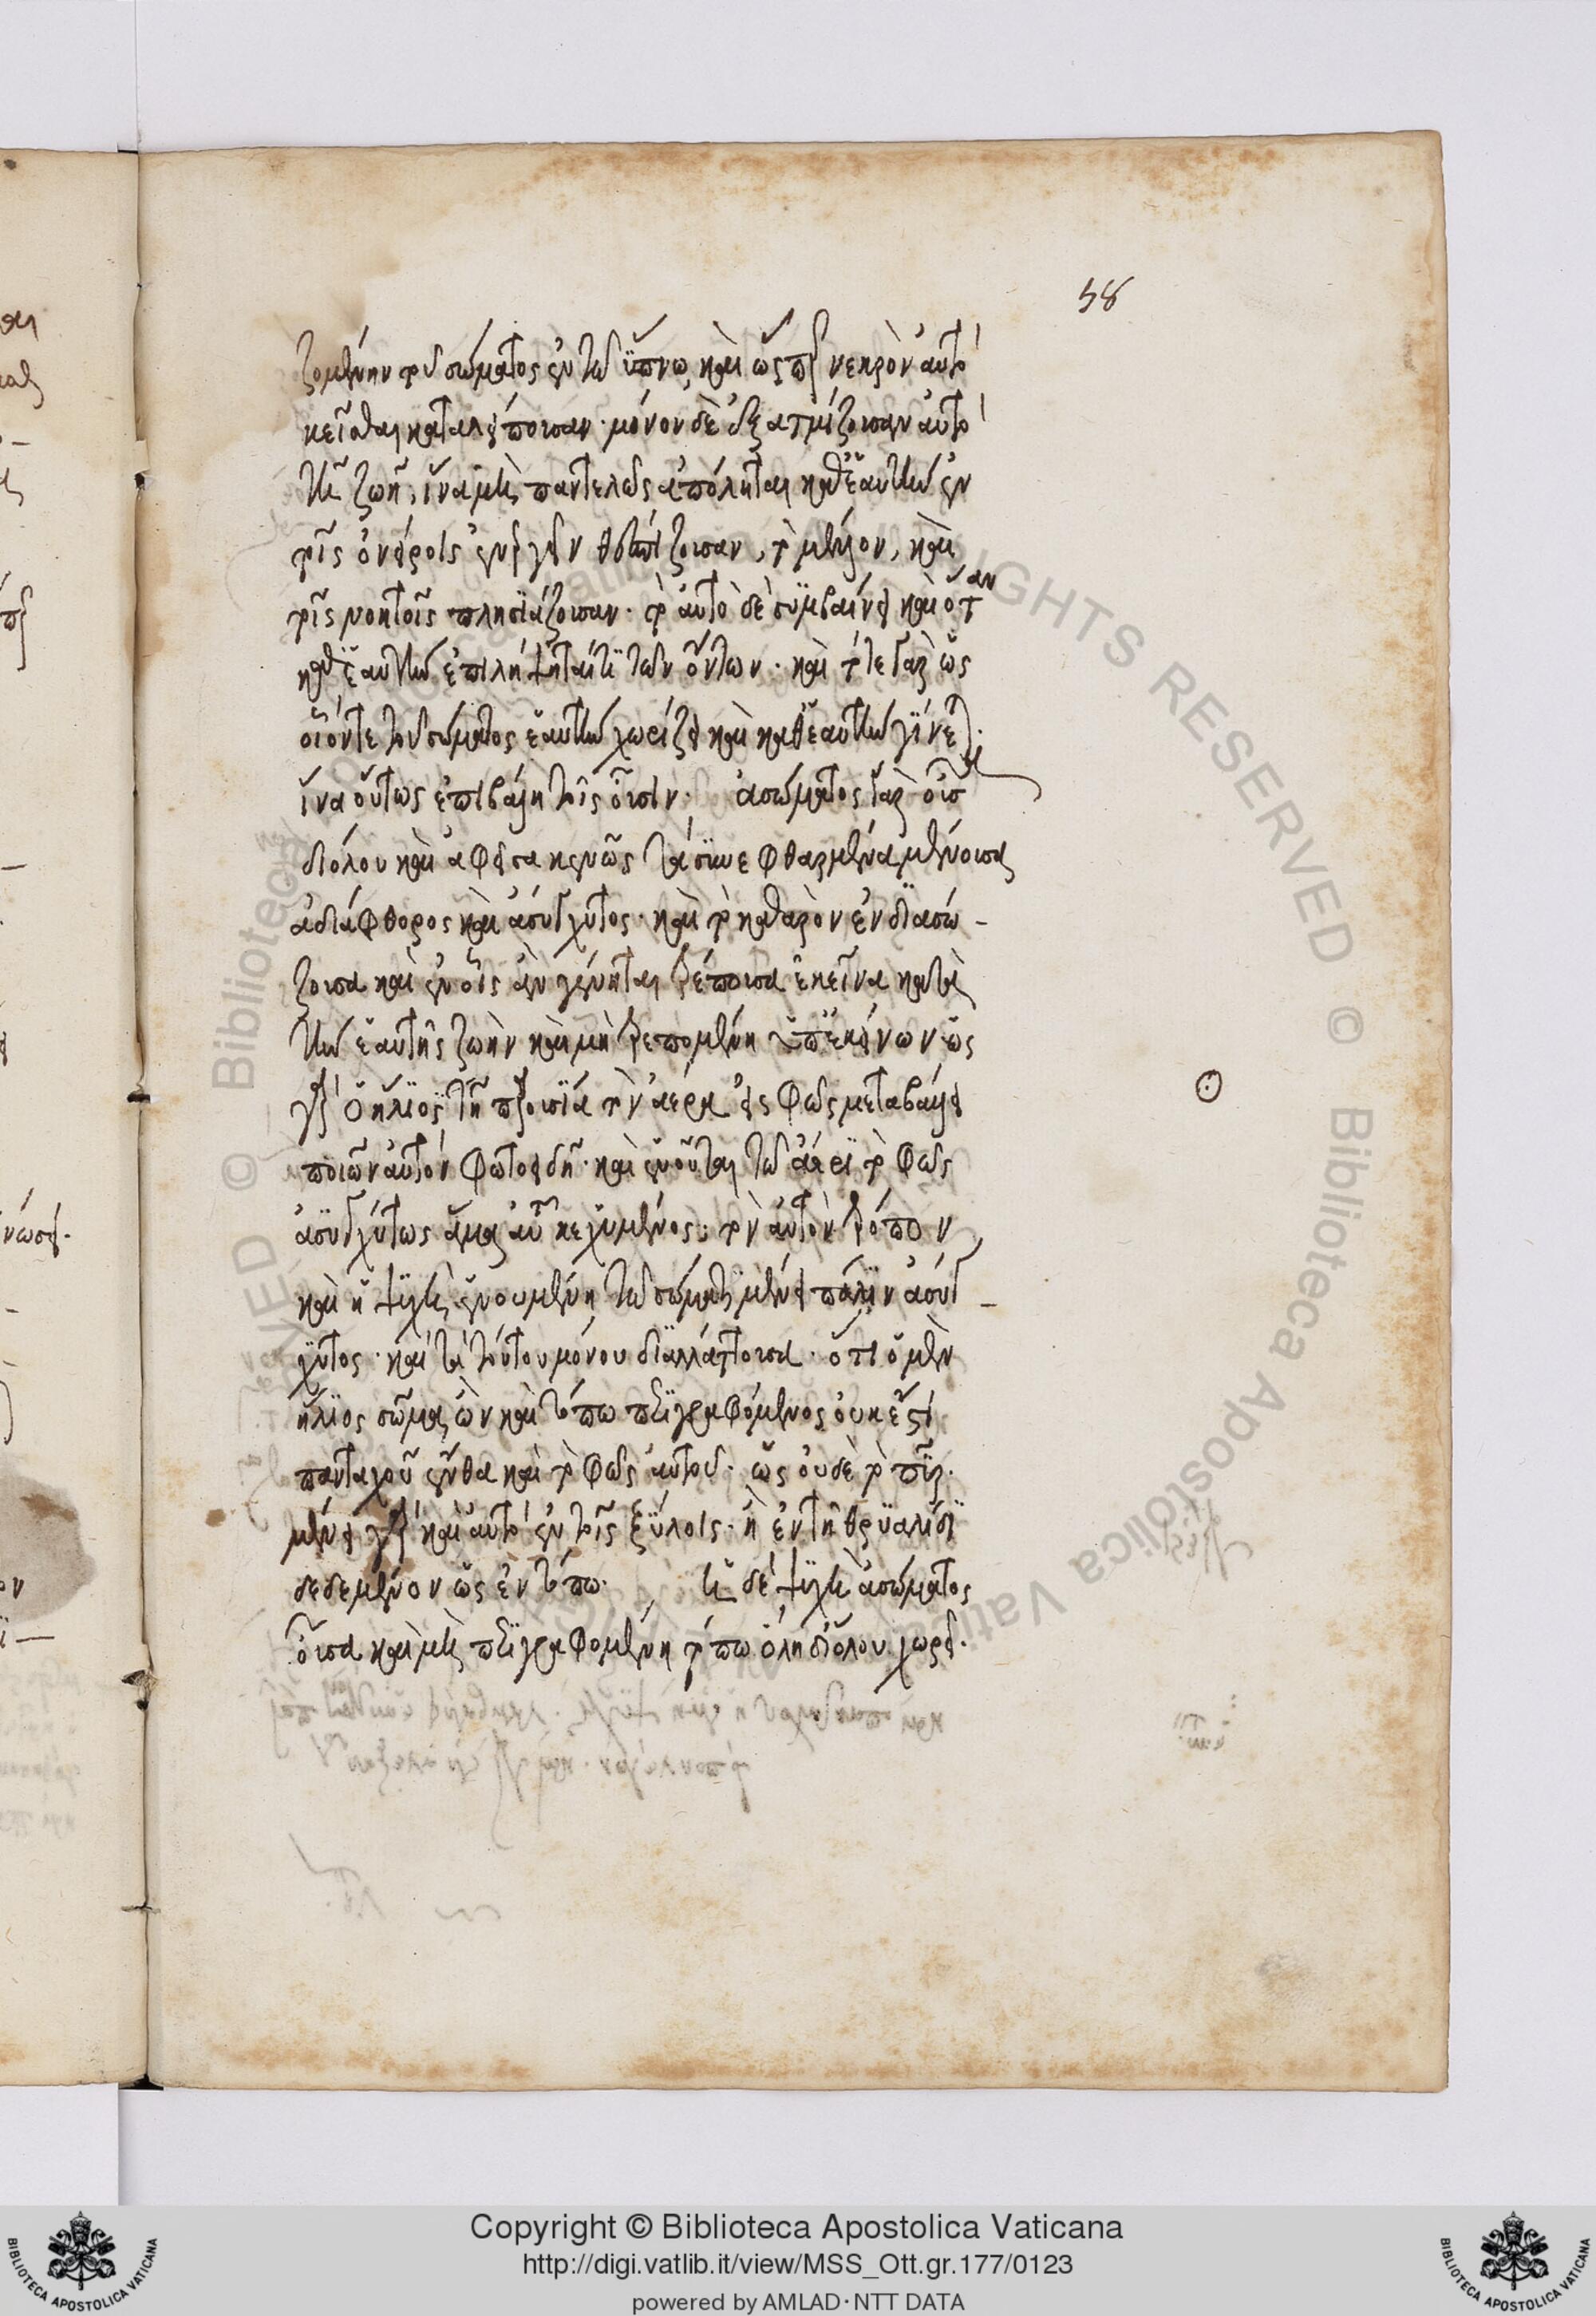 58
ζομένην τοῦ σώματος ἐν τῷ ὕπνω, καὶ ὥσπερ νεκρὸν αὐτὸ
κεῖσθαι καταλείπουσαν· μόνον δὲ ἐξατμίζουσαν αὐτὸ
τῆ ζωῆ, ἵνα μὴ παντελῶς ἀπόληται καθ' ἑαυτὴν ἐν
τοῖς ὀνείροις ἐνεργεῖν θεσπίζουσαν, τὸ μέλλον, καὶ
τοῖς νοητοῖς πλησιάζουσαν· τὸ αὐτὸ δὲ συμβαίνει καὶ ὅταν
καθ' ἑαυτὴν ἐπισκέπτηταί τι τῶν ὄντων· καὶ τότε γὰρ ὡς
οἷόντε τοῦ σώματος ἑαυτὴν χωρίζει καὶ καθ' ἑαυτὴν γίνεται·
ἵνα οὕτως ἐπιβάλη τοῖς οὖσιν· ἀσώματος γὰρ οὖσα
διόλου καὶ ἀφεῖσα κενῶς τὰ συνεφθαρμένα μένουσα
ἀδιάφθορος καὶ ἀσύγχυτος· καὶ τὸ καθαρὸν ἓν διασώ-
ζουσα καὶ ἐν οἷς ἂν γένηται τρέπουσα ἐκεῖνα κατὰ
τὴν ἑαυτῆς ζωὴν καὶ μὴ τρεπομένη ὑπ' ἐκείνων ὡς
γὰρ ὁ ἥλιος τῆ παρουσία τὸν ἀέρα εἰς φῶς μεταβάλλει
ποιῶν αὐτὸν φωτοειδῆ· καὶ ἑνοῦται τῷ ἀέρι τὸ φῶς
ἀσυγχύτως ἅμα αὐτῷ κεχυμένος· τὸν αὐτὸν τρόπον
καὶ ἡ ψυχὴ ἑνουμένη τῷ σώματι μένει πάλιν ἀσύγ-
χυτος· κατὰ τοῦτου μόνου διαλλάττουσα· ὅτι ὁ μὲν
ἥλιος σῶμα ὢν καὶ τόπω περιγραφόμενος οὐκ ἔστι
πανταχοῦ ἔνθα καὶ τὸ φῶς αὐτοῦ· ὡς οὐδὲ τὸ πῦρ·
μένει γὰρ καὶ αὐτὸ ἐν τοῖς ξύλοις· ἢ ἐν τῆ θρυαλίδι
δεδεμένον ὡς ἐν τόπω· ἡ δὲ ψυχὴ ἀσώματος
οὖσα καὶ μὴ περιγραφομένη τόπω ὅλη δι' ὅλου χωρεῖ·